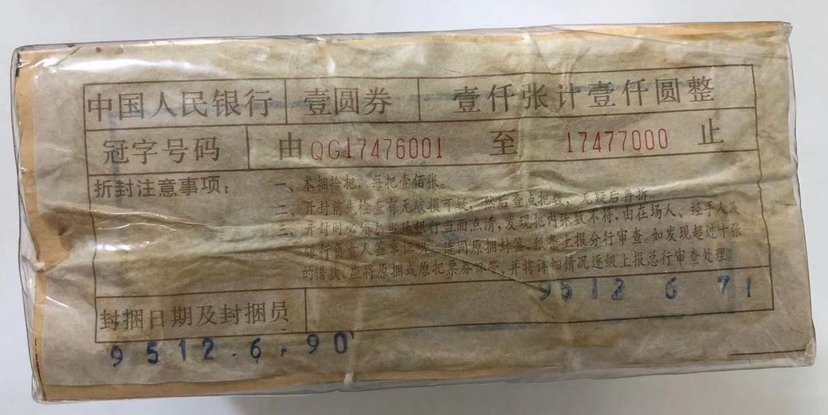 中国人民银行 壹圆券 壹仟张计壹仟圆整
冠字号码 由QG17476001 至 17477000 止
折封注意事项：
一、本捆拾把，每把壹佰张。
二、开封前先检查有无破损可疑，然后查点把数，无疑后再拆。
三、开封时必须当面点清，发现把内张数不符，由在场人、经手人及
银行负责人签章证明，连同原捆封签，报告上报分行审查。如发现超过十张
的错款，应将原捆或原把票券保留，并将详细情况逐级上报总行审查处理。
9512 6 71
封捆日期及封捆员
9512.6.90